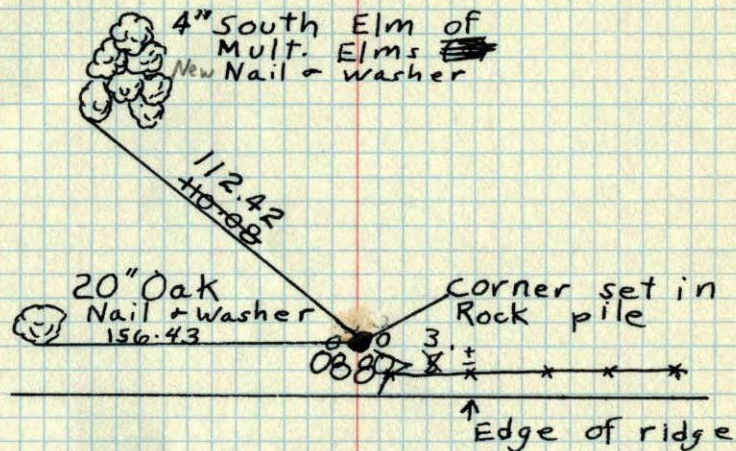 4" South Elm of
Mult. Elms
New Nail & washer
112.42
110.08
20" Oak
Nail & washer
156.43
Corner set in
Rock pile
3
8 ' ±
Edge of ridge